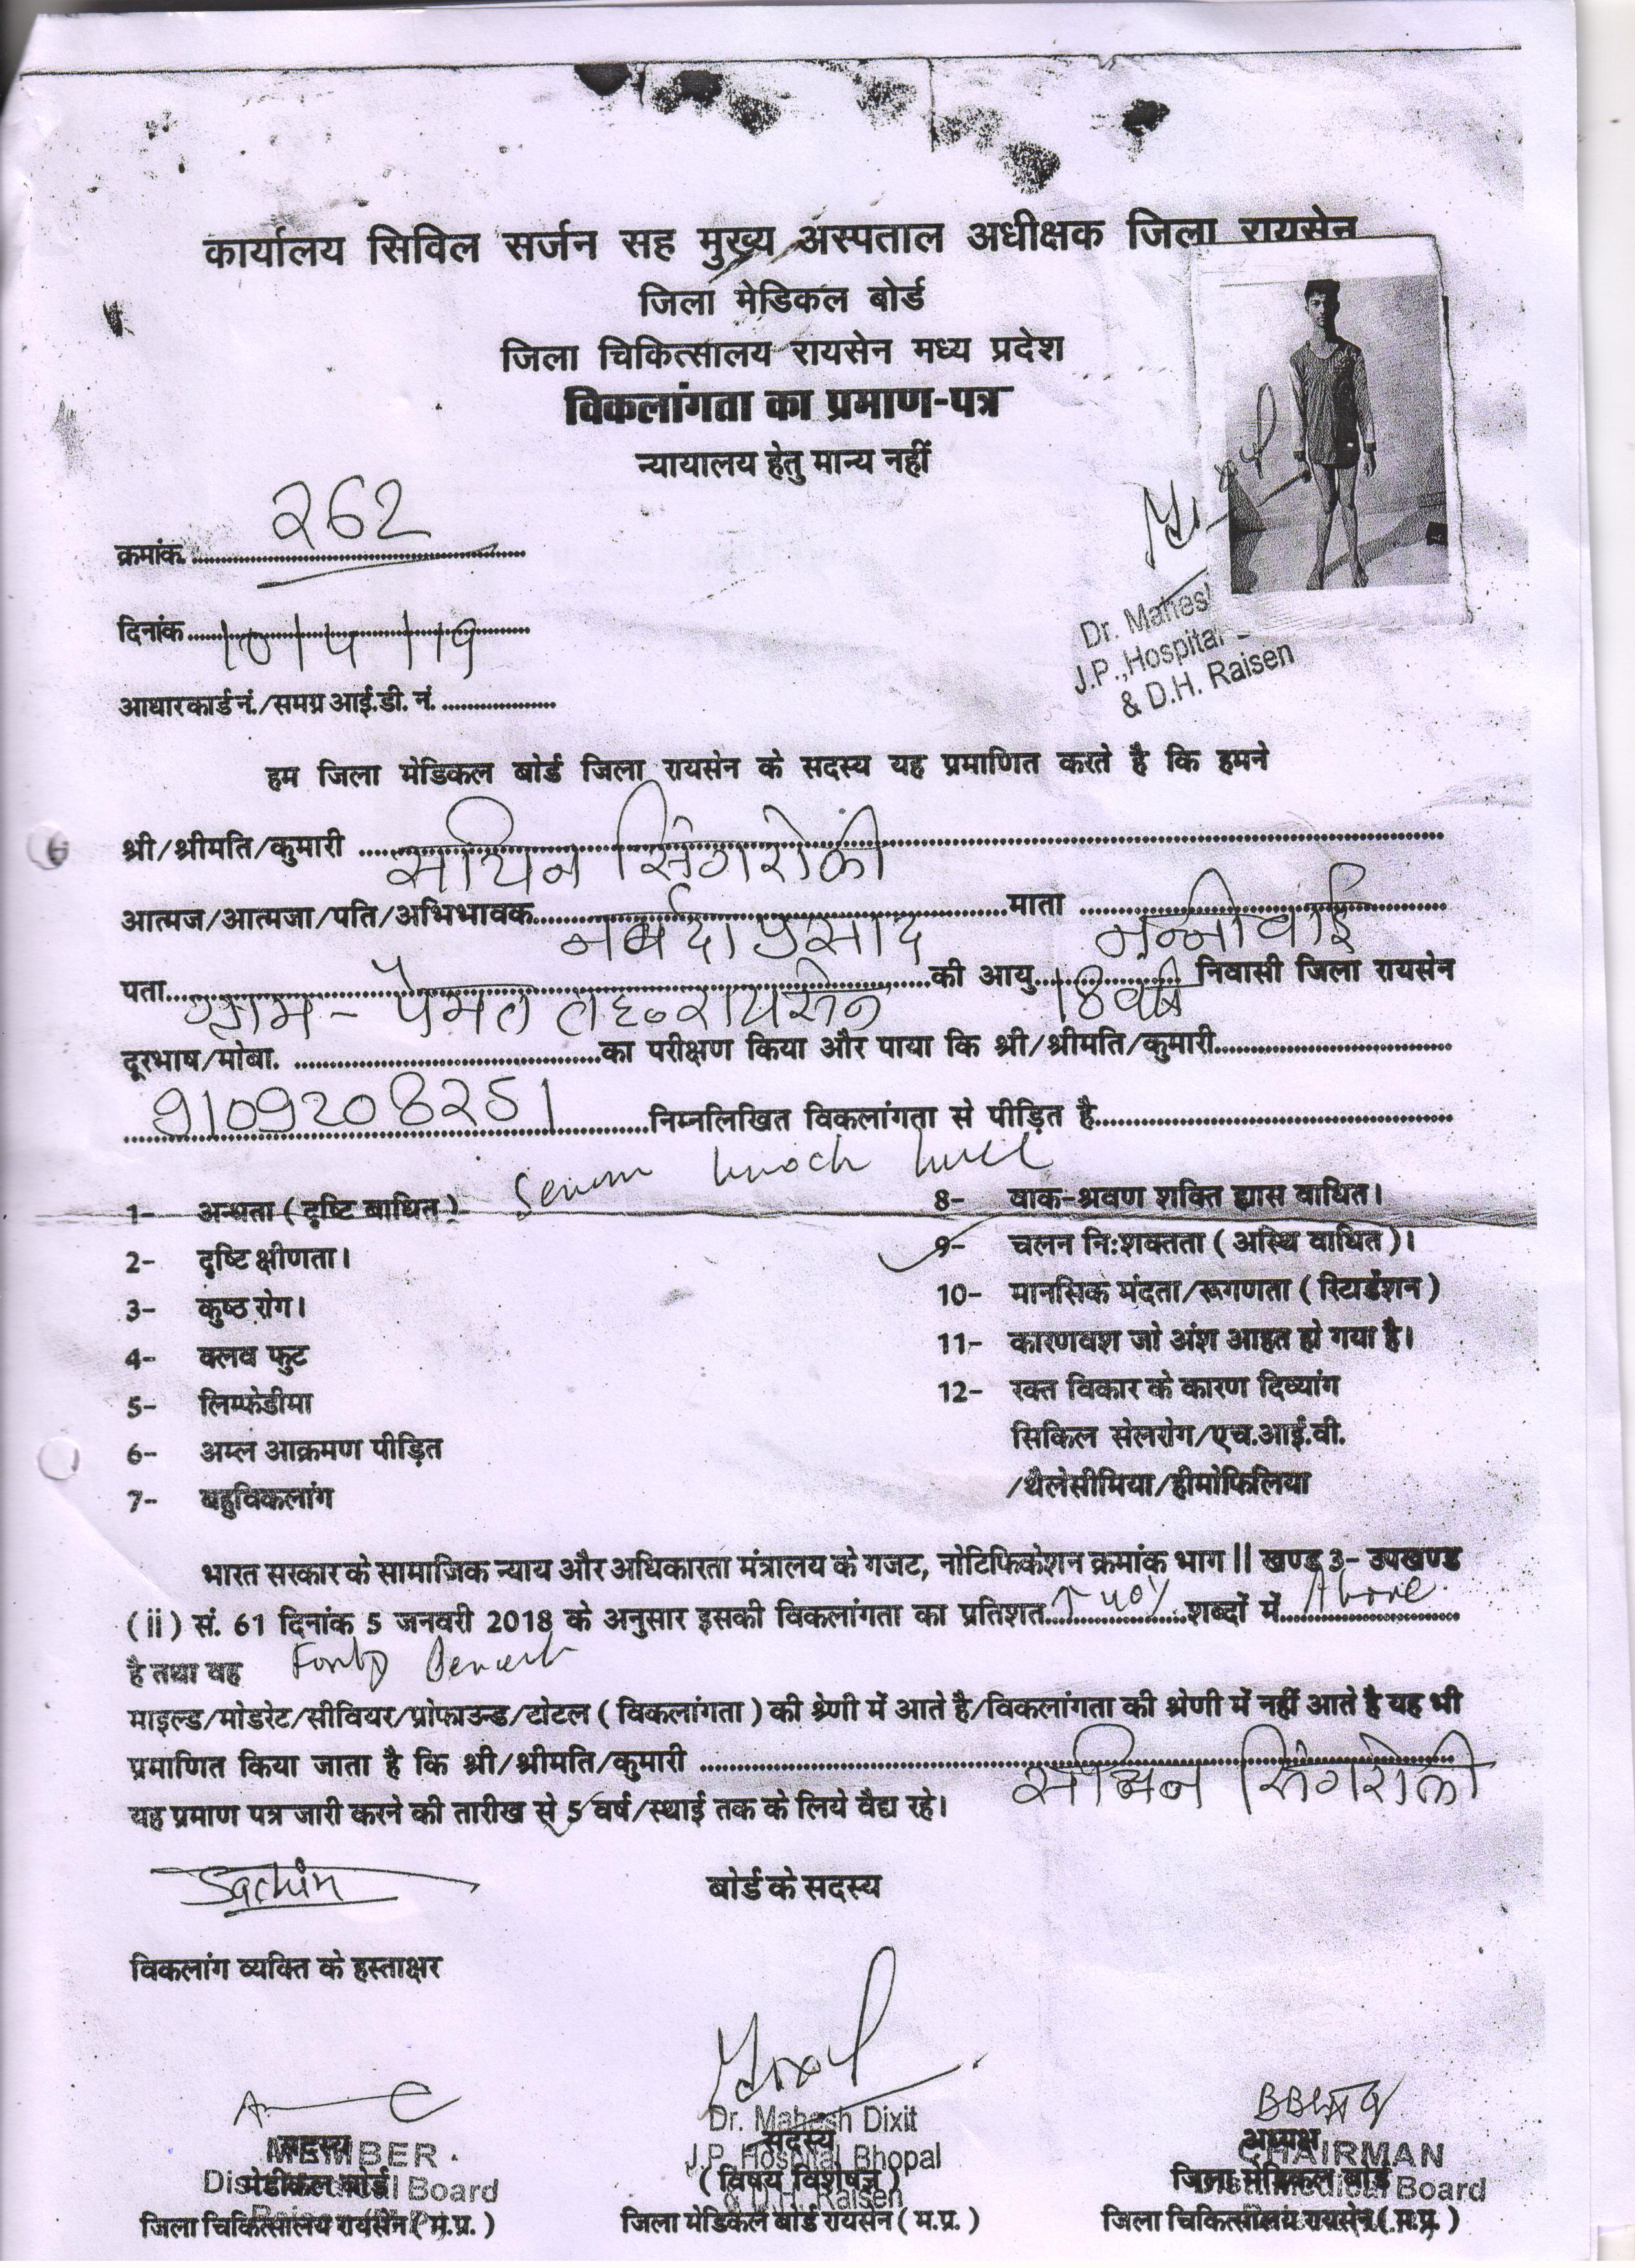 कार्यालय सिविल सर्जन सह मुख्य अस्पताल अधीक्षक जिला रायसेन
जिला मेडिकल बोर्ड
जिला चिकित्सालय रायसेन मध्य प्रदेश
विकलांगता का प्रमाण-पत्र
न्यायालय हेतु मान्य नहीं
क्रमांक 262
दिनांक 10/4/19
आधारकार्ड नं./समग्र आई.डी. नं.
Dr. Mahesh
J.P.,Hospital
& D.H. Raisen
हम जिला मेडिकल बोर्ड जिला रायसेन के सदस्य यह प्रमाणित करते है कि हमने
श्री/श्रीमति/कुमारी सचिन सिंगरोली
आत्मज/आत्मजा/पति/अभिभावक नर्बदा प्रसाद माता मुन्नीबाई
पता ग्राम - पैमत तह० रायसेन की आयु 18 वर्ष निवासी जिला रायसेन
दूरभाष/मोबा. का परीक्षण किया और पाया कि श्री/श्रीमति/कुमारी
9109208251 निम्नलिखित विकलांगता से पीड़ित है
knock knee
1- अन्धता (दृष्टि बाधित)
2- दृष्टि क्षीणता।
3- कुष्ठ रोग।
4- क्लव फुट
5- लिम्फेडीमा
6- अम्ल आक्रमण पीड़ित
7- बहुविकलांग
8- वाक-श्रवण शक्ति ह्यास बाधित।
9- चलन नि:शक्तता (अस्थि बाधित)।
10- मानसिक मंदता/रूगणता (रिटार्डेशन)
11- कारणवश जो अंश आहत हो गया है।
12- रक्त विकार के कारण दिव्यांग
सिकिल सेलरोग/एच.आई.वी.
/थैलेसीमिया/हीमोफिलिया
भारत सरकार के सामाजिक न्याय और अधिकारता मंत्रालय के गजट, नोटिफिकेशन क्रमांक भाग || खण्ड 3- उपखण्ड
(ii) सं. 61 दिनांक 5 जनवरी 2018 के अनुसार इसकी विकलांगता का प्रतिशत 40% शब्दों में Above
है तथा वह Forty Percent
माइल्ड/मोडरेट/सीवियर/प्रोफाउन्ड/टोटल (विकलांगता) की श्रेणी में आते है/विकलांगता की श्रेणी में नहीं आते है यह भी
प्रमाणित किया जाता है कि श्री/श्रीमति/कुमारी सचिन सिंगरोली
यह प्रमाण पत्र जारी करने की तारीख से 5 वर्ष/स्थाई तक के लिये वैद्य रहे।
Sachin
बोर्ड के सदस्य
विकलांग व्यक्ति के हस्ताक्षर
सदस्य
MEMBER
मेडीकल बोर्ड
जिला चिकित्सालय रायसेन (म.प्र.)
Dr. Mahesh Dixit
सदस्य
J.P. Hospital Bhopal
(विषय विशेषज्ञ)
& D.H. Raisen
जिला मेडिकल बोर्ड रायसेन (म.प्र.)
अध्यक्ष
CHAIRMAN
जिला मेडिकल बोर्ड
जिला चिकित्सालय रायसेन (म.प्र.)